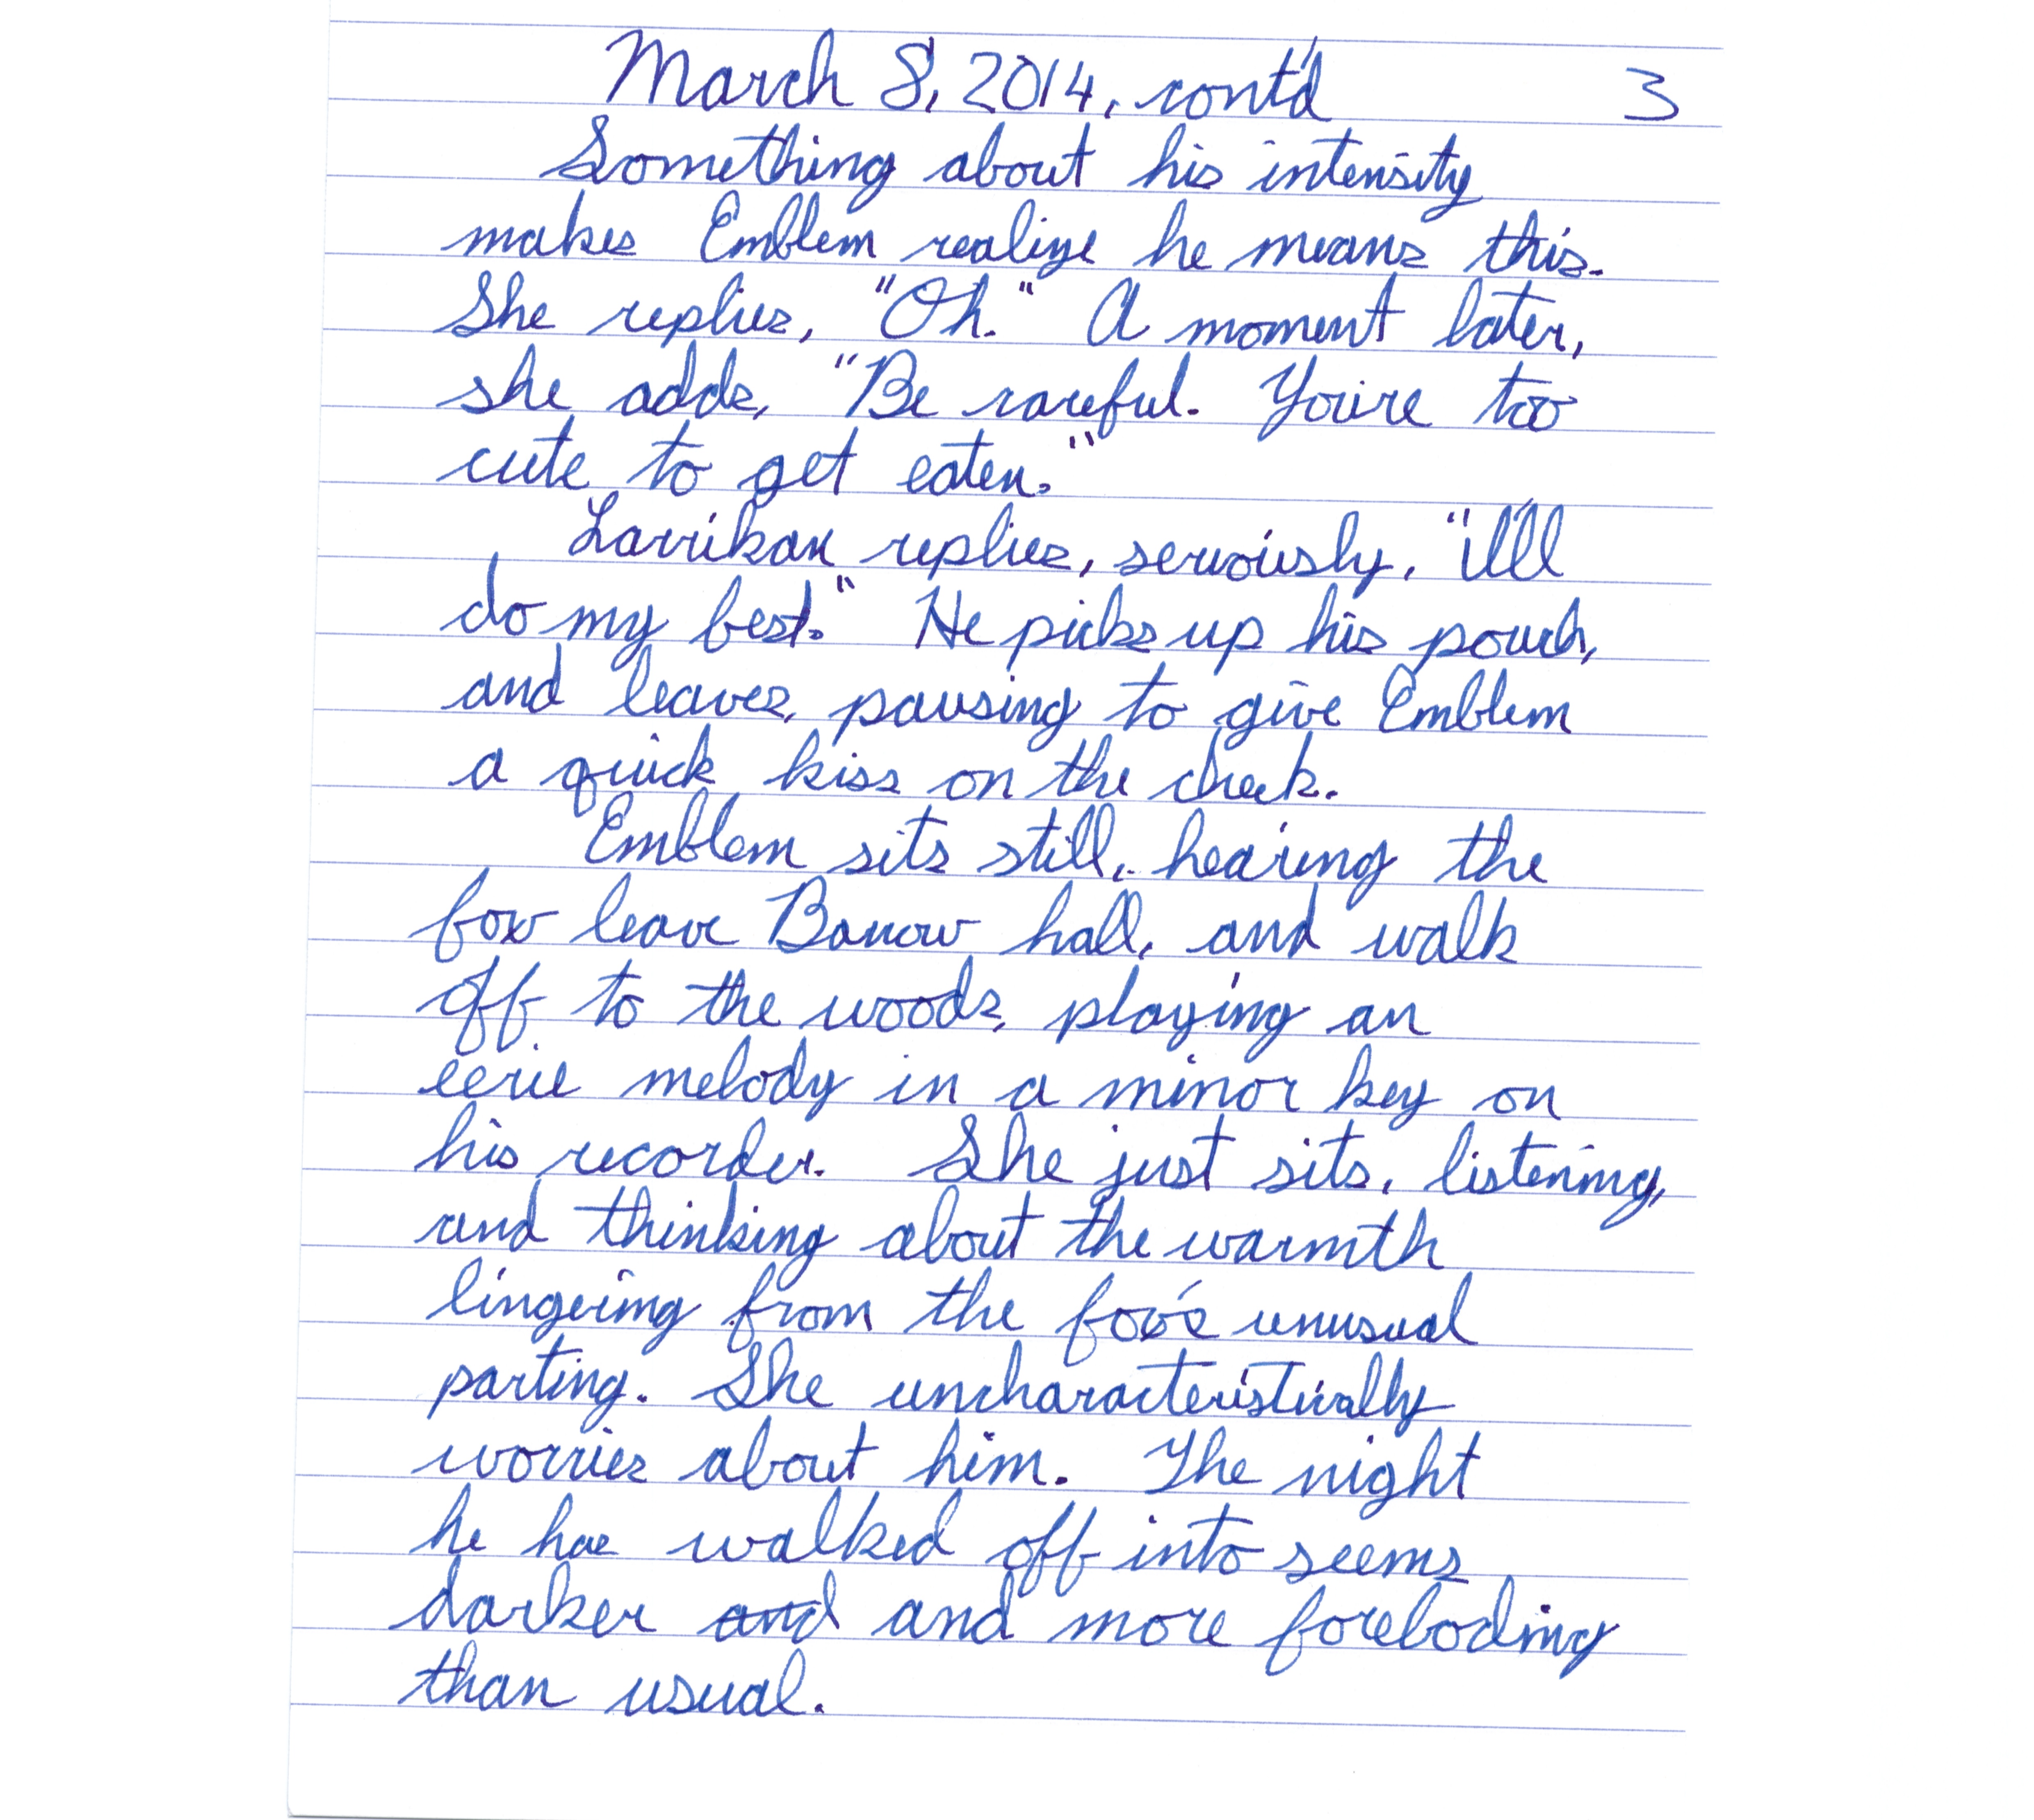 March 8, 2014, cont'd 3
Something about his intensity
makes Emblem realize he means this.
She replies, "Oh." A moment later,
she adds, "Be careful. You're too
cute to get eaten."
Larrikan replies, seriously, "I'll
do my best." He picks up his pouch,
and leaves, pausing to give Emblem
a quick kiss on the cheek.
Emblem sits still, hearing the
fox leave Barrow hall, and walk
off to the woods, playing an
eerie melody in a minor key on
his recorder. She just sits, listening,
and thinking about the warmth
lingering from the fox's unusual
parting. She uncharacteristically
worries about him. The night
he has walked off into seems
darker and and more foreboding
than usual.